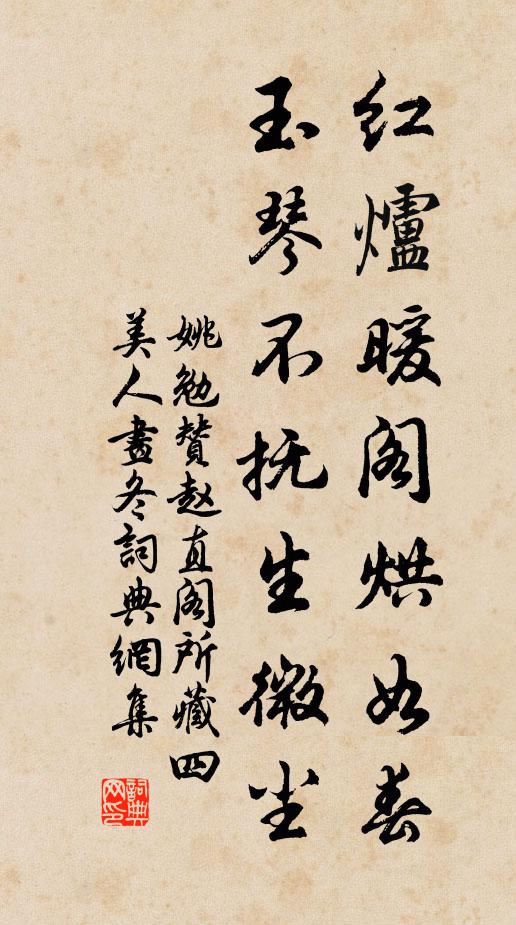 红爐暖阁烘如春
玉琴不抚生微尘
姚勉赞赵直阁所藏四
美人畫冬詞典網集
詞典
网印